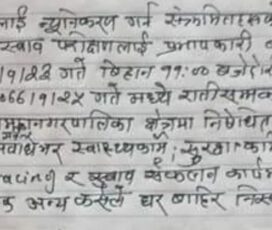 लाई न्यूनिकरण गर्न संक्रमितहरूक
स्वाव परीक्षणलाई प्रभावकारी
।१।२३ गते बिहान ११:०० बजेदेखि
०६६।१।२५ गते मध्ये रातीसम्मक
नगरपालिका क्षेत्रमा निषेधित
भर स्वास्थ्यकर्मी, सुरक्षाकर्म
acing र स्वाव संकलन कार्यम
क अन्य कसैले घर बाहिर निस्क